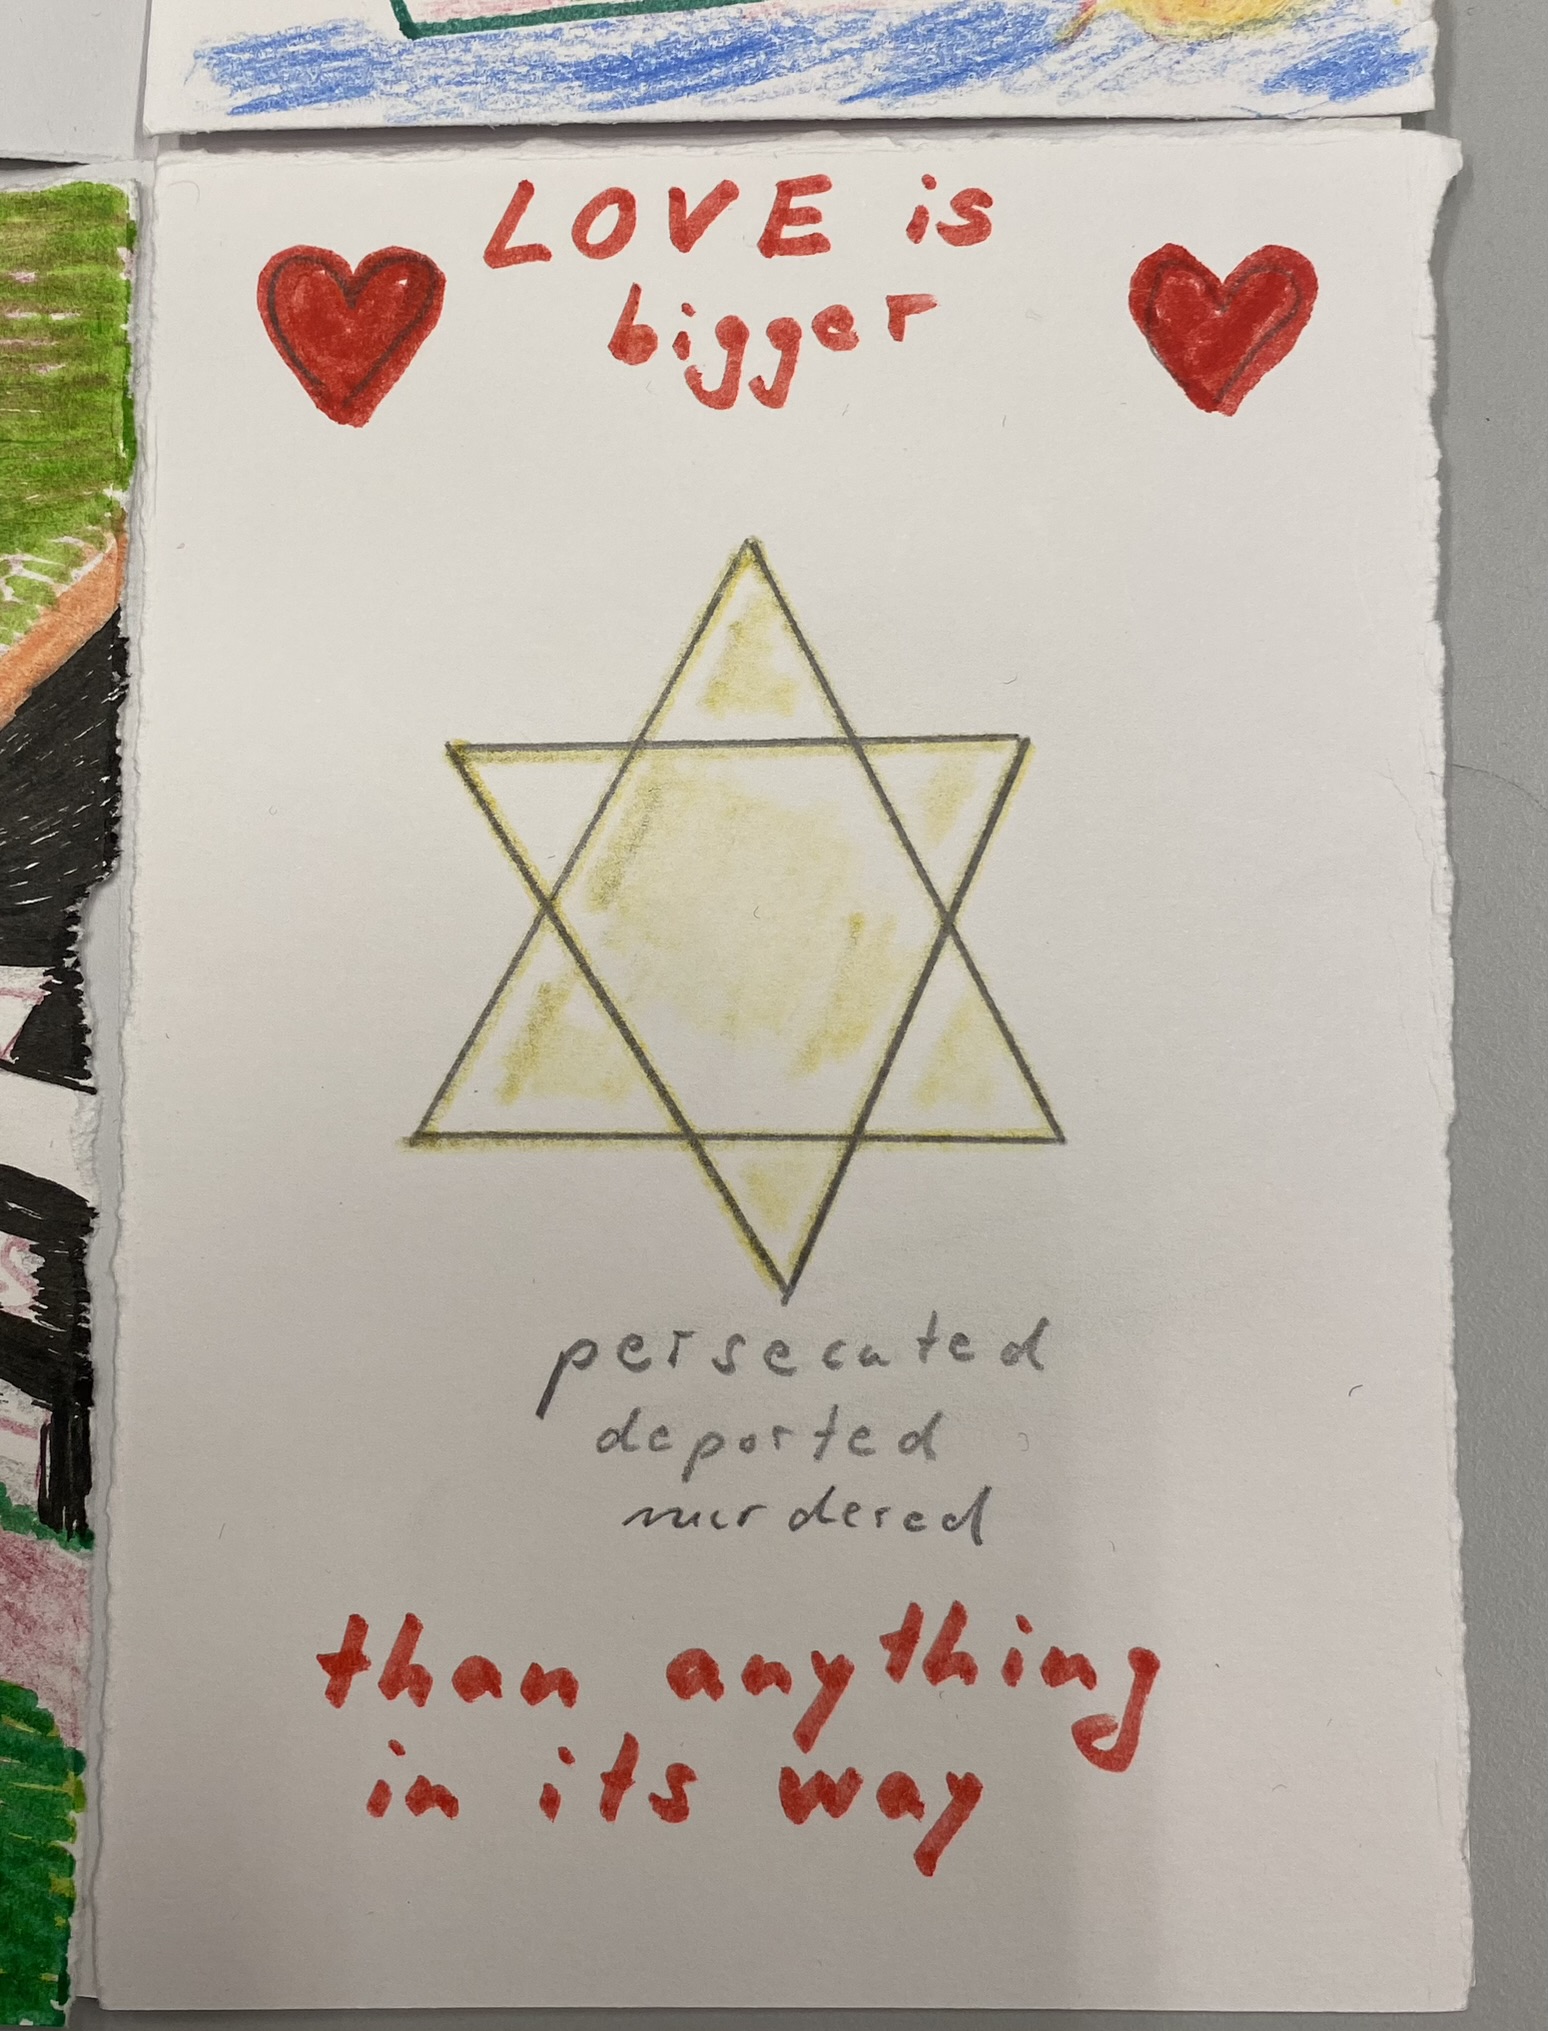 LOVE is
bigger
persecuted
deported
murdered
than anything
in its way